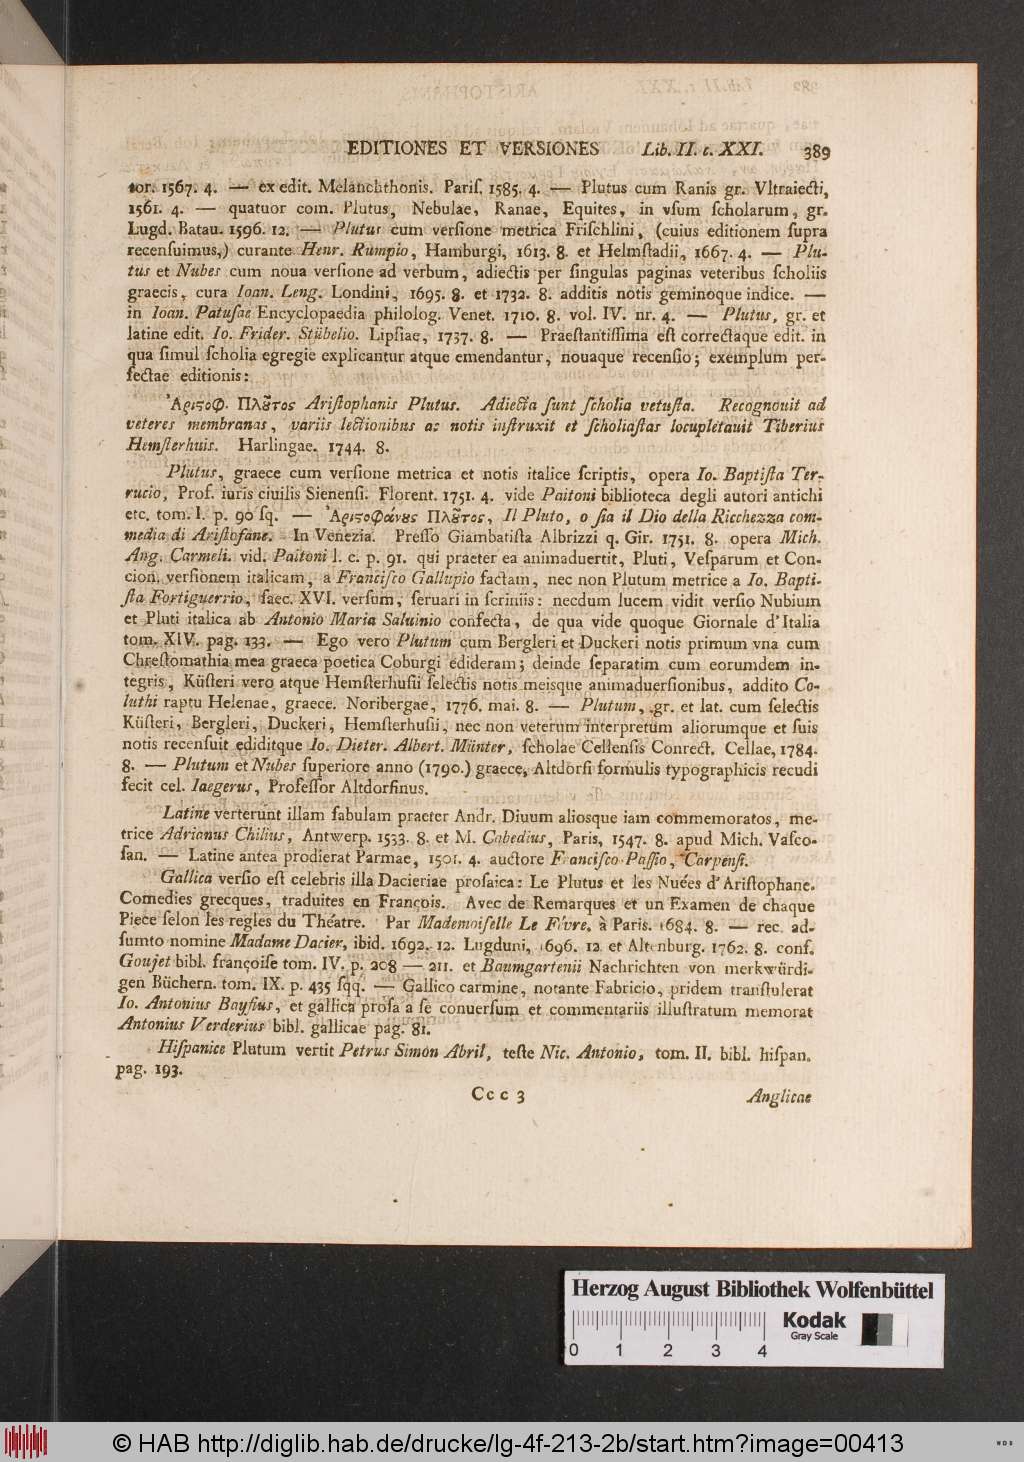 EDITIONES ET VERSIONES Lib. II. c. XXI. 389
tor. 1567. 4. — ex edit. Melanchthonis. Pariſ. 1585. 4. — Plutus cum Ranis gr. Vltraiecti,
1561. 4. — quatuor com. Plutus, Nebulae, Ranae, Equites, in vſum ſcholarum, gr.
Lugd. Batau. 1596. 12. — Plutus cum verſione metrica Friſchlini, (cuius editionem ſupra
recenſuimus,) curante Henr. Rumpio, Hamburgi, 1613. 8. et Helmſtadii, 1667. 4. — Plu-
tus et Nubes cum noua verſione ad verbum, adiectis per ſingulas paginas veteribus ſcholiis
graecis, cura Ioan. Leng. Londini, 1695. 8. et 1732. 8. additis notis geminoque indice. —
in Ioan. Patuſae Encyclopaedia philolog. Venet. 1710. 8. vol. IV. nr. 4. — Plutus, gr. et
latine edit. Io. Frider. Stübelio. Lipſiae, 1737. 8. — Praeſtantiſſima eſt correctaque edit. in
qua ſimul ſcholia egregie explicantur atque emendantur, nouaque recenſio; exemplum per-
fectae editionis:
Ἀριϛοφ. Πλȣ͂τος Ariſtophanis Plutus. Adiecta ſunt ſcholia vetuſta. Recognouit ad
veteres membranas, variis lectionibus ac notis inſtruxit et ſcholiaſtas locupletauit Tiberius
Hemſterhuis. Harlingae. 1744. 8.
Plutus, graece cum verſione metrica et notis italice ſcriptis, opera Io. Baptiſta Ter-
rucio, Prof. iuris ciuilis Sienenſi. Florent. 1751. 4. vide Paitoni biblioteca degli autori antichi
etc. tom. I. p. 90 ſq. — Ἀριϛοφάνȣς Πλȣ͂τος, Il Pluto, o ſia il Dio della Ricchezza com-
media di Ariſtofane. In Venezia. Preſſo Giambatiſta Albrizzi q. Gir. 1751. 8. opera Mich.
Ang. Carmeli. vid. Paitoni l. c. p. 91. qui praeter ea animaduertit, Pluti, Veſparum et Con-
cion. verſionem italicam, a Franciſco Gallupio factam, nec non Plutum metrice a Io. Bapti-
ſta Fortiguerrio, ſaec. XVI. verſum, ſeruari in ſcriniis: necdum lucem vidit verſio Nubium
et Pluti italica ab Antonio Maria Saluinio confecta, de qua vide quoque Giornale d'Italia
tom. XIV. pag. 133. — Ego vero Plutum cum Bergleri et Duckeri notis primum vna cum
Chreſtomathia mea graeca poetica Coburgi edideram; deinde ſeparatim cum eorumdem in-
tegris, Küſteri vero atque Hemſterhuſii ſelectis notis meisque animaduerſionibus, addito Co-
luthi raptu Helenae, graece. Noribergae, 1776. mai. 8. — Plutum, gr. et lat. cum ſelectis
Küſteri, Bergleri, Duckeri, Hemſterhuſii, nec non veterum interpretum aliorumque et ſuis
notis recenſuit ediditque Io. Dieter. Albert. Münter, ſcholae Cellenſis Conrect. Cellae, 1784.
8. — Plutum et Nubes ſuperiore anno (1790.) graece, Altdorfi formulis typographicis recudi
fecit cel. Iaegerus, Profeſſor Altdorfinus.
Latine verterunt illam fabulam praeter Andr. Diuum aliosque iam commemoratos, me-
trice Adrianus Chilius, Antwerp. 1533. 8. et M. Cabedius, Paris, 1547. 8. apud Mich. Vaſco-
ſan. — Latine antea prodierat Parmae, 1501. 4. auctore Franciſco Paſſio, Carpenſi.
Gallica verſio eſt celebris illa Dacieriae proſaica: Le Plutus et les Nuées d'Ariſtophane.
Comedies grecques, traduites en François. Avec de Remarques et un Examen de chaque
Piece ſelon les regles du Théatre. Par Mademoiſelle Le Févre, à Paris. 1684. 8. — rec. ad-
ſumto nomine Madame Dacier, ibid. 1692. 12. Lugduni, 1696. 12. et Altenburg. 1762. 8. conf.
Goujet bibl. françoiſe tom. IV. p. 208 — 211. et Baumgartenii Nachrichten von merkwürdi-
gen Büchern. tom. IX. p. 435 ſqq. — Gallico carmine, notante Fabricio, pridem tranſtulerat
Io. Antonius Bayfius, et gallica proſa a ſe conuerſum et commentariis illuſtratum memorat
Antonius Verderius bibl. gallicae pag. 81.
Hiſpanice Plutum vertit Petrus Simon Abril, teſte Nic. Antonio, tom. II. bibl. hiſpan.
pag. 193.
Ccc 3 Anglicae
Herzog August Bibliothek Wolfenbüttel
Kodak
Gray Scale
0 1 2 3 4
© HAB http://diglib.hab.de/drucke/lg-4f-213-2b/start.htm?image=00413